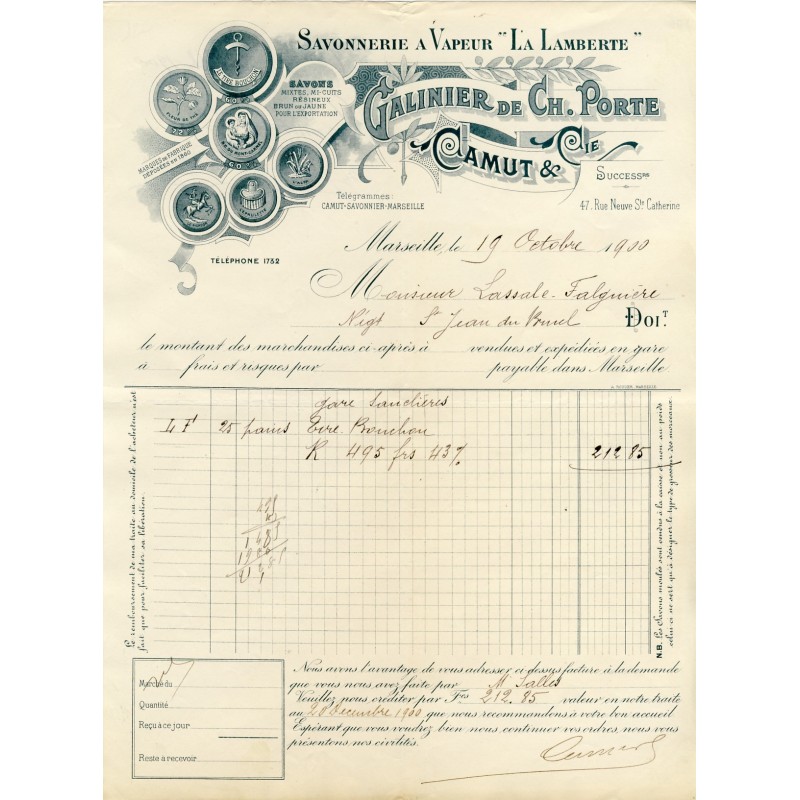 SAVONNERIE A VAPEUR "LA LAMBERTE"
GALINIER DE CH. PORTE
CAMUT & CIE
SUCCESSRS
47, Rue Neuve Ste Catherine
SAVONS
MIXTES, MI-CUITS
RÉSINEUX
BRUN OU JAUNE
POUR L'EXPORTATION
LE TIRE BOUCHON
FLEUR DE THÉ
72%
60%
MARQUES DE FABRIQUE
DÉPOSÉES EN 1860
Télégrammes:
CAMUT-SAVONNIER-MARSEILLE
TÉLÉPHONE 1732
Marseille, le 19 Octobre 1900
Monsieur Lassale-Falguière
Négt St Jean du Bruel DOIT.
le montant des marchandises ci-après à vendues et expédiées en gare
à frais et risques par payable dans Marseille
gare Sauclières
LF 25 pains Tire-Bouchon
K 495 frs 43% 212 85
495
43
1485
1980
Le remboursement de ma traite au domicile de l'acheteur n'est
fait que pour faciliter sa libération.
N.B. Les Savons moulés sont vendus à la caisse et non au poids
celui-ci ne sert qu'à désigner le type de grosseur des morceaux.
Marché du
Quantité
Reçu à ce jour
Reste à recevoir
Nous avons l'avantage de vous adresser ci-dessus facture à la demande
que vous nous avez faite par M Salles
Veuillez nous créditer par Frs 212.85 valeur en notre traite
au 20 Decembre 1900 que nous recommandons à votre bon accueil
Espérant que vous voudrez bien nous continuer vos ordres, nous vous
présentons nos civilités.